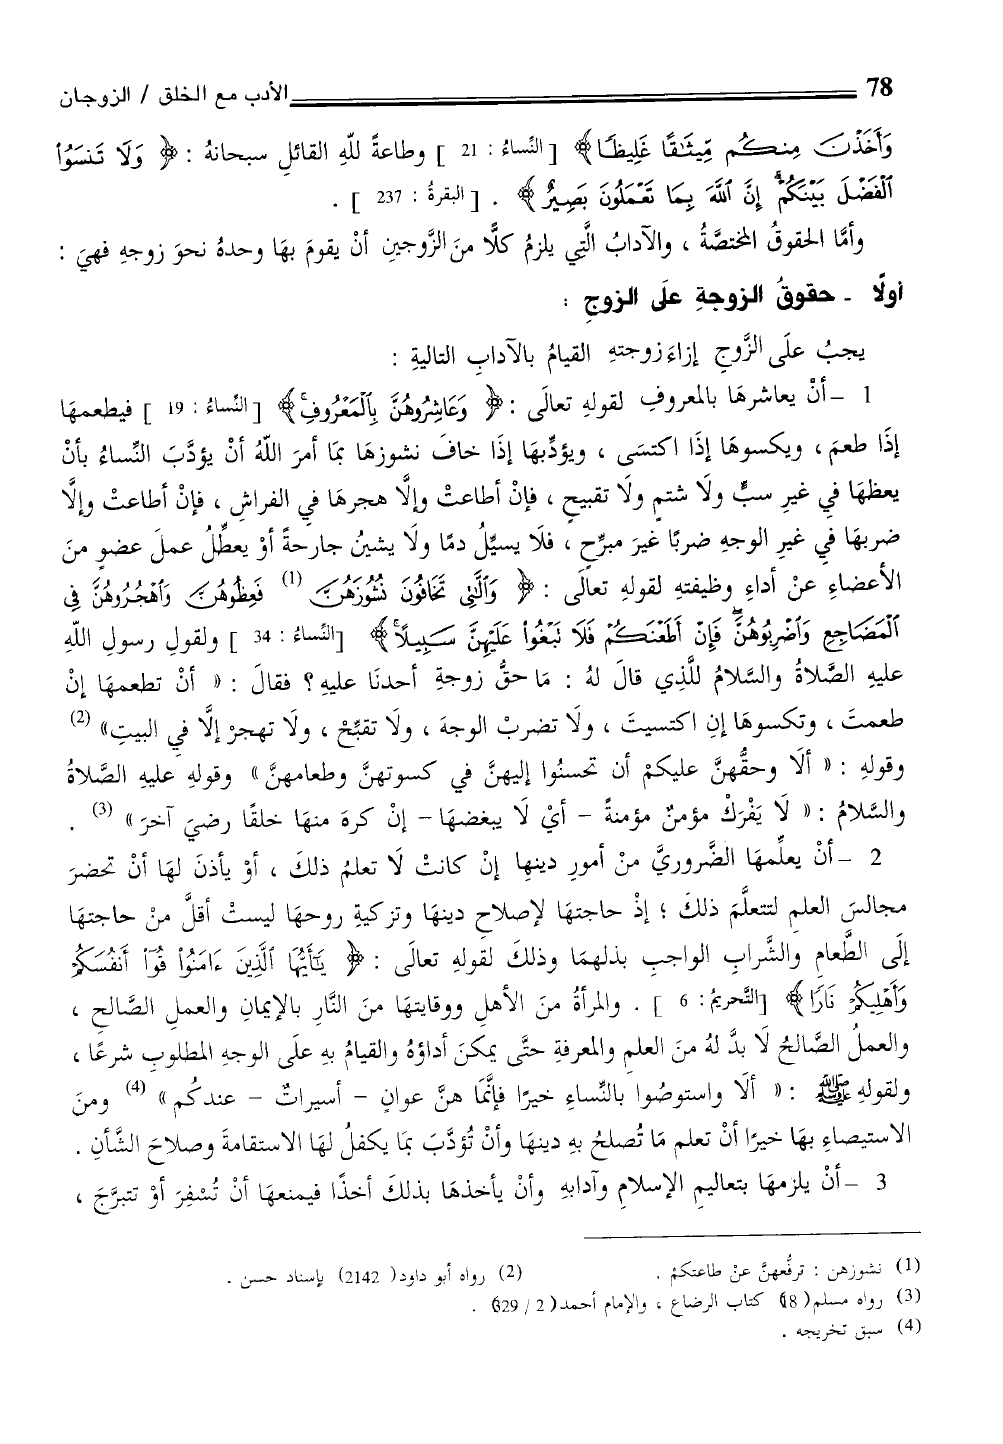 78 الأدب مع الخلق / الزوجان
وَأَخَذْنَ مِنكُم مِّيثَٰقًا غَلِيظًا﴾ [النِّساءُ : 21] وطاعةً للّهِ القائلِ سبحانهُ : ﴿ وَلَا تَنسَوُا
ٱلْفَضْلَ بَيْنَكُمْ ۚ إِنَّ ٱللَّهَ بِمَا تَعْمَلُونَ بَصِيرٌ ﴾ . [البقرةُ : 237] .
وأمَّا الحقوقُ المختصَّةُ ، والآدابُ الَّتِي يلزمُ كلًّا منَ الزَّوجينِ أنْ يقومَ بهَا وحدهُ نحوَ زوجهِ فهيَ :
أولًا - حقوقُ الزوجةِ علَى الزوجِ :
يجبُ علَى الزَّوجِ إزاءَ زوجتهِ القيامُ بالآدابِ التاليةِ :
1 - أنْ يعاشرهَا بالمعروفِ لقولهِ تعالَى : ﴿ وَعَاشِرُوهُنَّ بِٱلْمَعْرُوفِ ۚ﴾ [النِّساءُ : 19] فيطعمهَا
إذَا طعمَ ، ويكسوهَا إذَا اكتسَى ، ويؤدِّبهَا إذَا خافَ نشوزهَا بمَا أمرَ اللّهُ أنْ يؤدَّبَ النِّساءُ بأنْ
يعظهَا فِي غيرِ سبٍّ ولَا شتمٍ ولَا تقبيحٍ ، فإنْ أطاعتْ وإلَّا هجرهَا فِي الفراشِ ، فإنْ أطاعتْ وإلَّا
ضربهَا فِي غيرِ الوجهِ ضربًا غيرَ مبرِّحٍ ، فلَا يسيِّلُ دمًا ولَا يشينُ جارحةً أوْ يعطِّلُ عملَ عضوٍ منَ
الأعضاءِ عنْ أداءِ وظيفتهِ لقولهِ تعالَى : ﴿ وَٱلَّٰتِى تَخَافُونَ نُشُوزَهُنَّ (1) فَعِظُوهُنَّ وَٱهْجُرُوهُنَّ فِى
ٱلْمَضَاجِعِ وَٱضْرِبُوهُنَّ ۖ فَإِنْ أَطَعْنَكُمْ فَلَا تَبْغُوا۟ عَلَيْهِنَّ سَبِيلًا ۗ﴾ [النِّساءُ : 34] ولقولِ رسولِ اللّهِ
عليهِ الصَّلاةُ والسَّلامُ للَّذِي قالَ لهُ : مَا حقُّ زوجةِ أحدنَا عليهِ ؟ فقالَ : « أنْ تطعمهَا إنْ
طعمتَ ، وتكسوهَا إنِ اكتسيتَ ، ولَا تضربْ الوجهَ ، ولَا تقبِّحْ ، ولَا تهجرْ إلَّا فِي البيتِ» (2)
وقولهِ : « ألَا وحقُّهنَّ عليكمْ أن تحسنُوا إليهنَّ في كسوتهنَّ وطعامهنَّ » وقولهِ عليهِ الصَّلاةُ
والسَّلامُ : « لَا يَفْرَكْ مؤمنٌ مؤمنةً - أيْ لَا يبغضهَا - إنْ كرهَ منهَا خلقًا رضيَ آخرَ » (3) .
2 - أنْ يعلِّمهَا الضَّروريَّ منْ أمورِ دينهِا إنْ كانتْ لَا تعلمُ ذلكَ ، أوْ يأذنَ لهَا أنْ تحضرَ
مجالسَ العلمِ لتتعلَّمَ ذلكَ ؛ إذْ حاجتهَا لإصلاحِ دينهَا وتزكيةِ روحهَا ليستْ أقلَّ منْ حاجتهَا
إلَى الطَّعامِ والشَّرابِ الواجبِ بذلهمَا وذلكَ لقولهِ تعالَى : ﴿ يَٰٓأَيُّهَا ٱلَّذِينَ ءَامَنُوا۟ قُوٓا۟ أَنفُسَكُمْ
وَأَهْلِيكُمْ نَارًا﴾ [التَّحريمُ : 6] . والمرأةُ منَ الأهلِ ووقايتهَا منَ النَّارِ بالإيمانِ والعملِ الصَّالحِ ،
والعملُ الصَّالحُ لَا بدَّ لهُ منَ العلمِ والمعرفةِ حتَّى يمكنَ أداؤهُ والقيامُ بهِ علَى الوجهِ المطلوبِ شرعًا ،
ولقولهِ ﷺ : « ألَا واستوصُوا بالنِّساءِ خيرًا فإنَّمَا هنَّ عوانٍ - أسيراتٌ - عندكُم » (4) ومنَ
الاستيصاءِ بهَا خيرًا أنْ تعلم مَا تُصلحُ بهِ دينهَا وأنْ تُؤدَّبَ بمَا يكفلُ لهَا الاستقامةَ وصلاحَ الشَّأنِ .
3 - أنْ يلزمهَا بتعاليمِ الإسلامِ وآدابهِ وأنْ يأخذهَا بذلكَ أخذًا فيمنعهَا أنْ تُسْفِرَ أوْ تتبرَّجَ ،
(1) نشوزهن : ترفّعهنَّ عنْ طاعتكمْ . (2) رواه أبو داود (2142) بإسناد حسن .
(3) رواه مسلم (18) كتاب الرضاع ، والإمام أحمد (2 / 329) .
(4) سبق تخريجه .